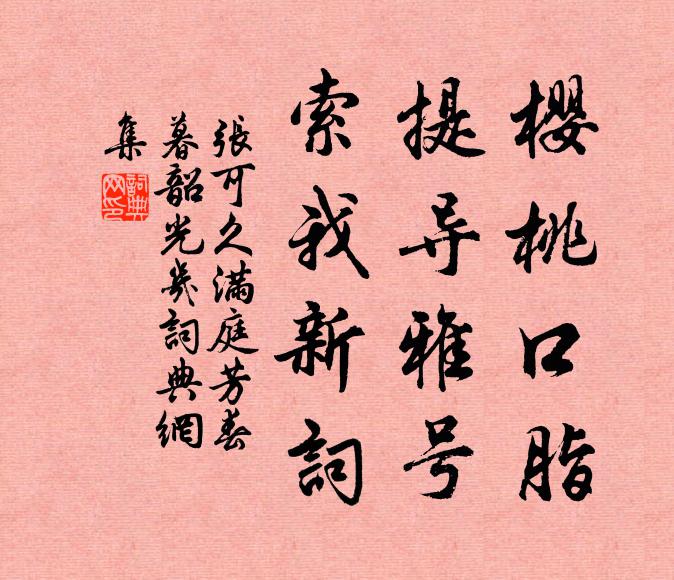 櫻桃口脂
提导雅号
索我新詞
張可久滿庭芳春
暮韶光几詞典網
集
詞典網印